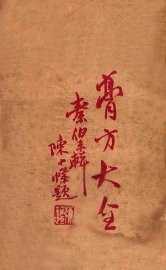 膏方大全
秦伯未輯
陳士榘題